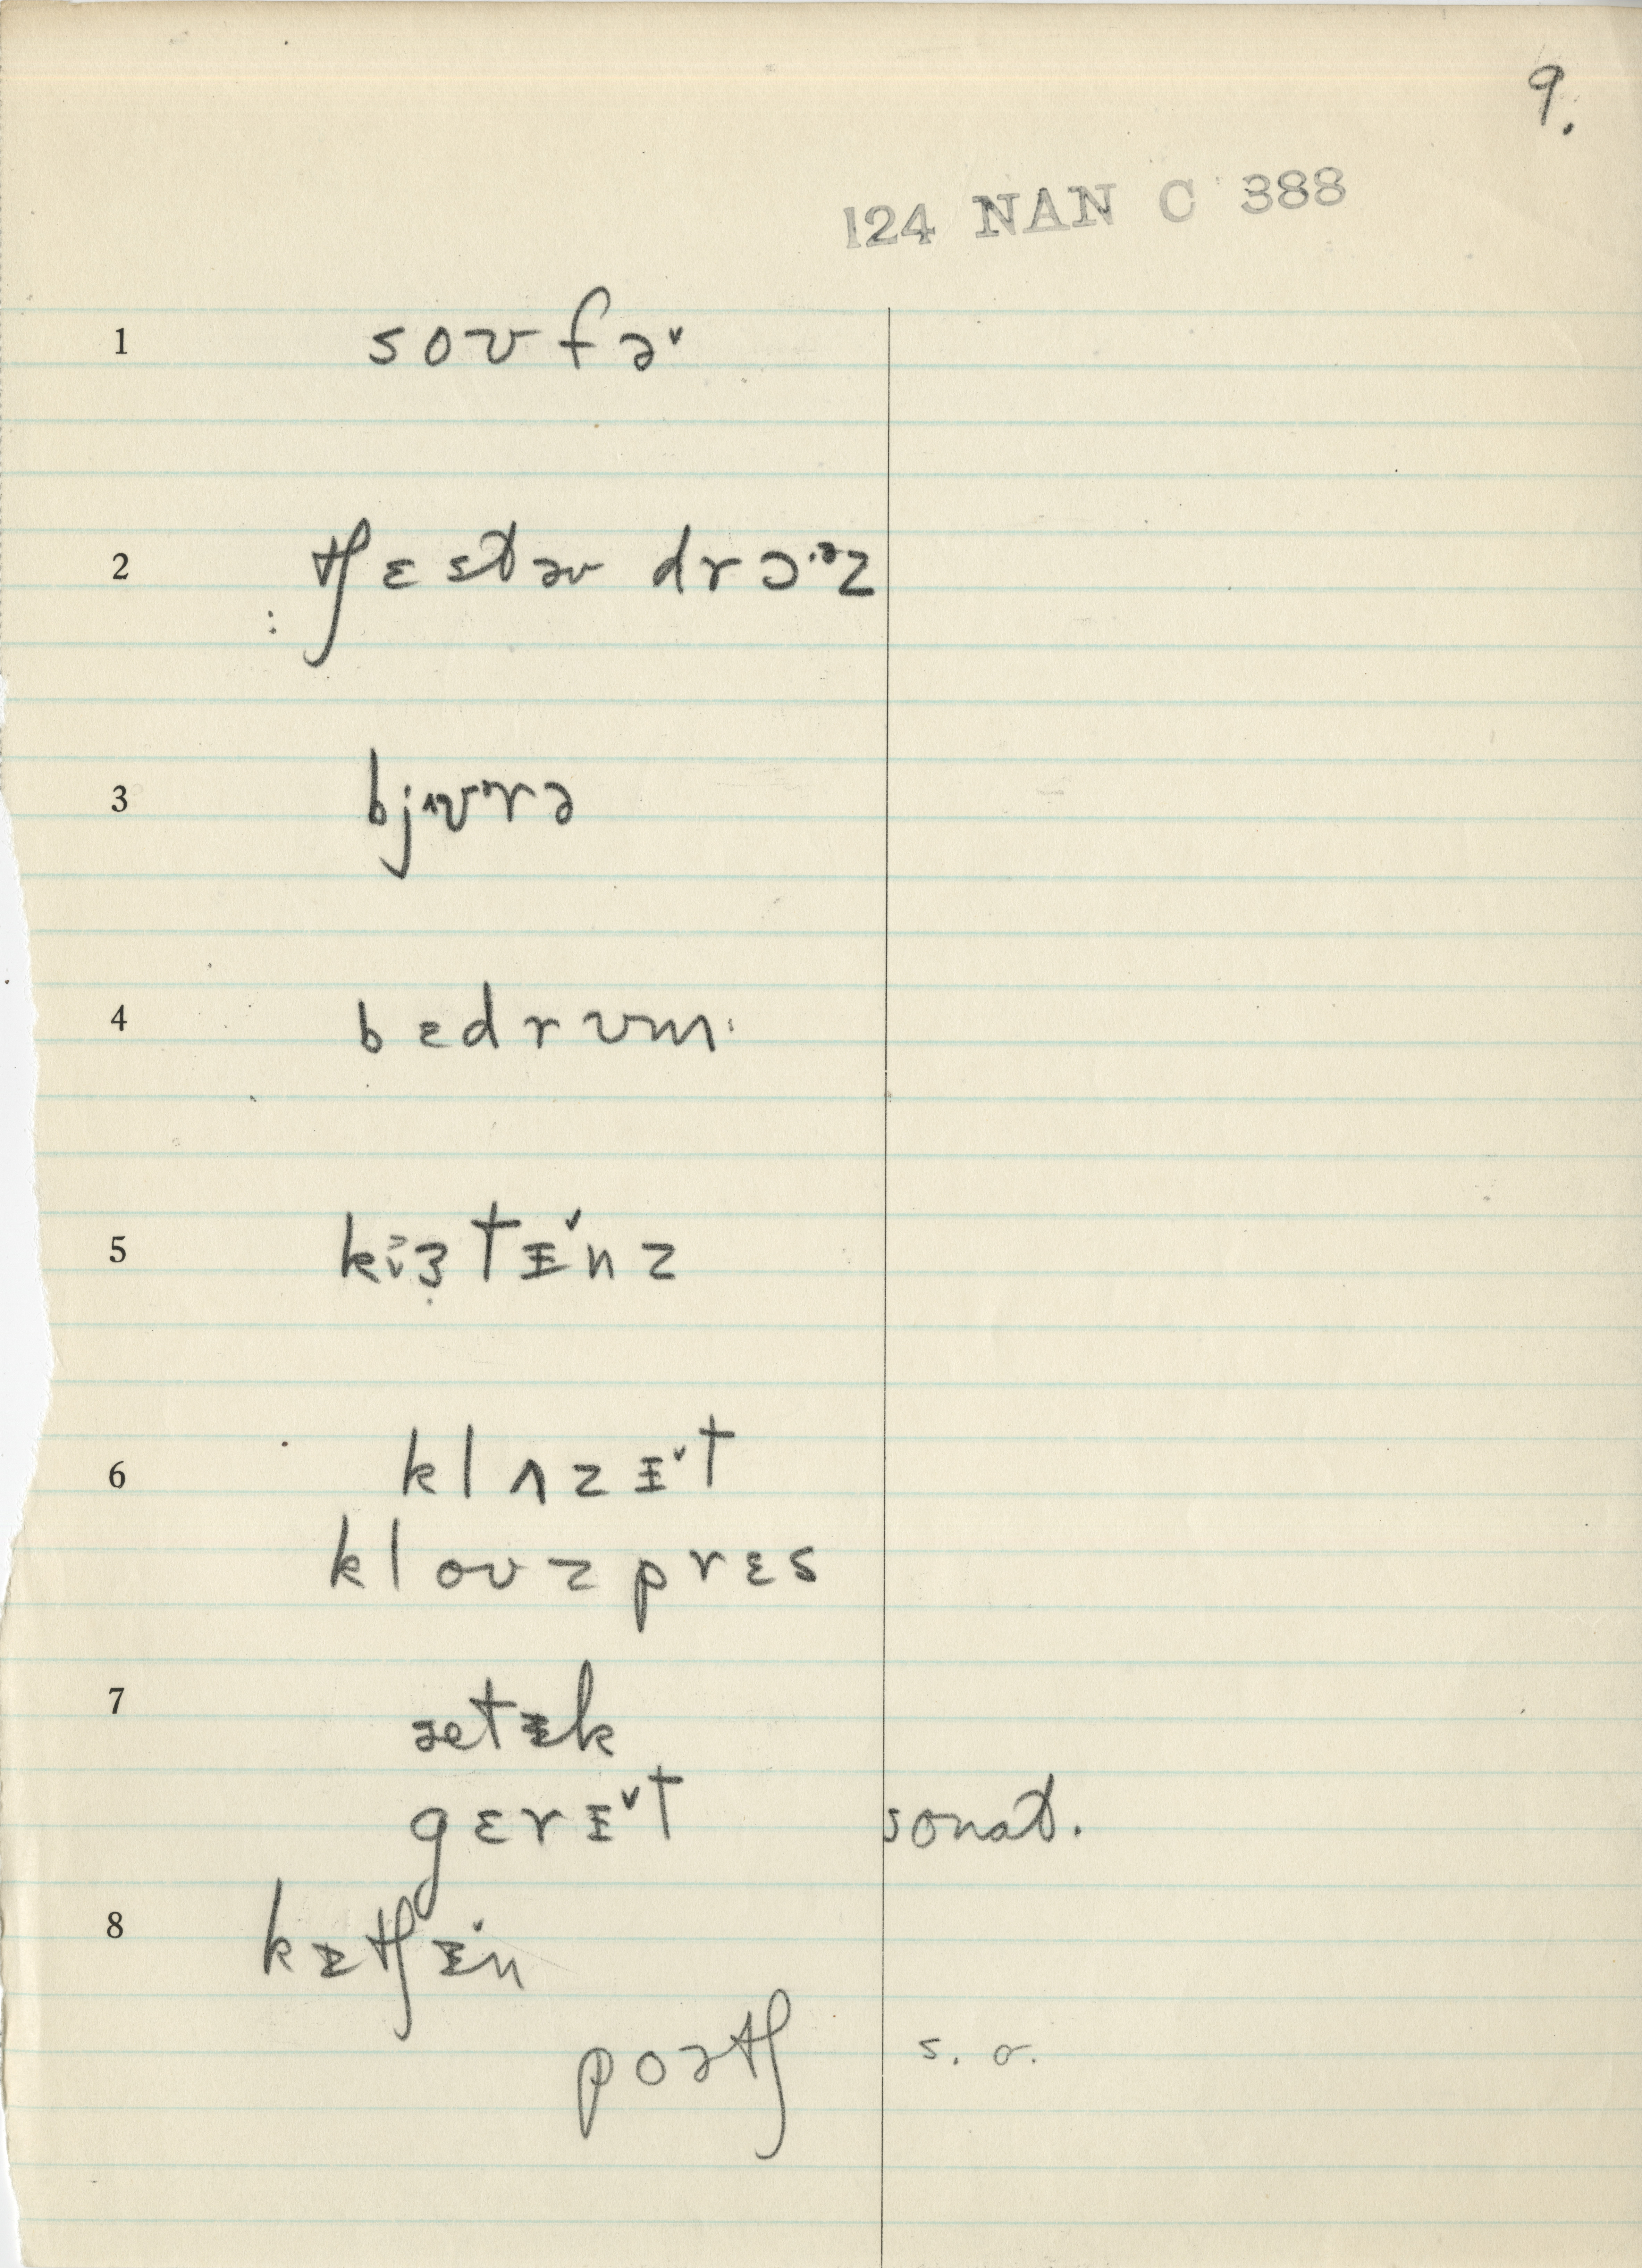 9.
124 NAN C 388
1 soʊfə˅
2 tʃɛstəv drɔ·ᵊz
3 bj^ʊʳrə
4 bɛdrʊm·
5 tᵻ˅nz
6 klɑzᵻ˅t
kloʊzprɛs
7 ætᵻk
gɛrᵻ˅t sonat.
8 kᵻtʃᵻ˅n
poətʃ s. o.